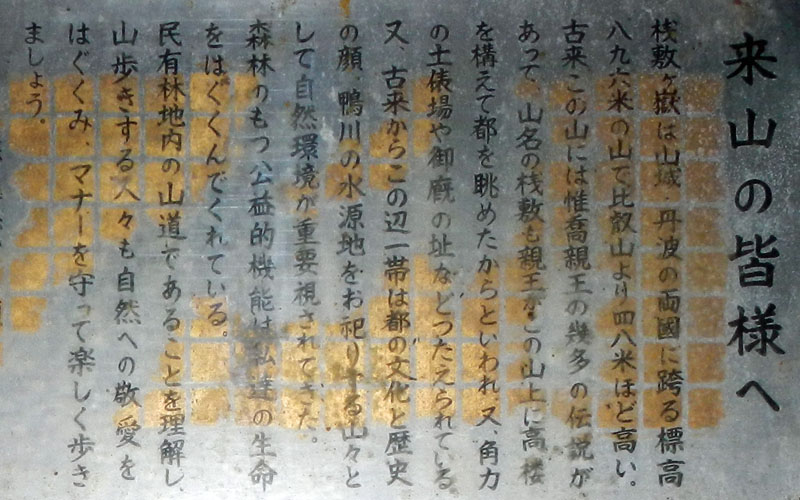 来山の皆様へ
桟敷ヶ嶽は山城・丹波の両國に跨る標高
八九六米の山で比叡山より四八米ほど高い。
古来この山には惟喬親王の幾多の伝説が
あって、山名の桟敷も親王がこの山上に高楼
を構えて都を眺めたからといわれ、又角力
の土俵場や御厩の址などつたえられている
又、古来からこの辺一帯は都の文化と歴史
の顔、鴨川の水源地をお祀りする山々と
して自然環境が重要視されてきた。
森林のもつ公益的機能は私達の生命
をはぐくんでくれている。
民有林地内の山道であることを理解し、
山歩きする人々も自然への敬愛を
はぐくみ、マナーを守って楽しく歩き
ましょう。